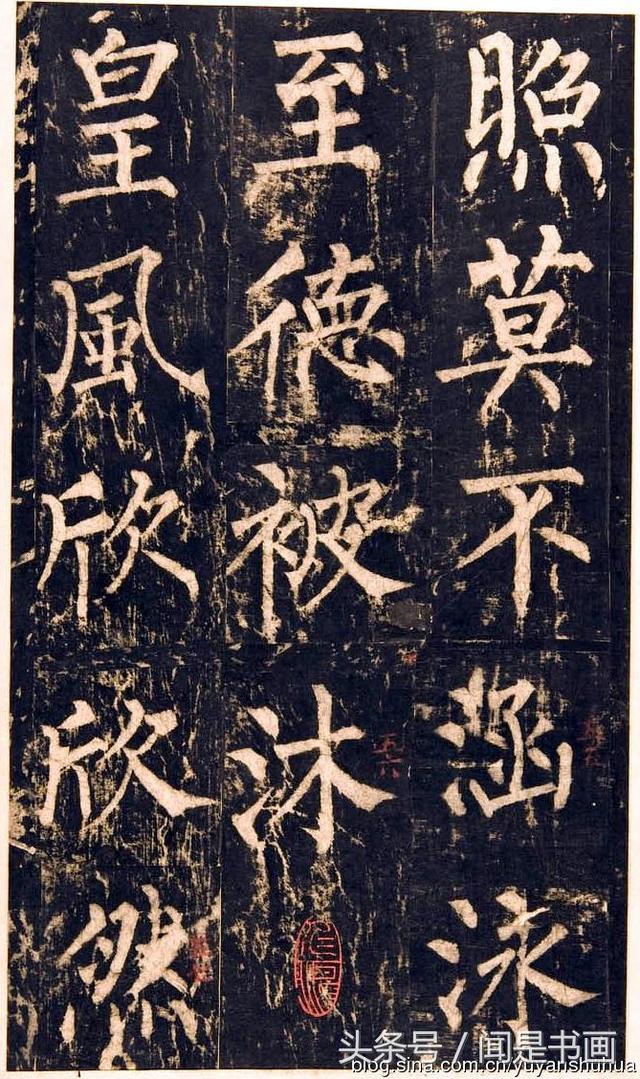 照莫不涵泳
至德被沐
皇風欣欣然
头条号 / 闻是书画
blog.sina.com.cn/yuyanshuhua